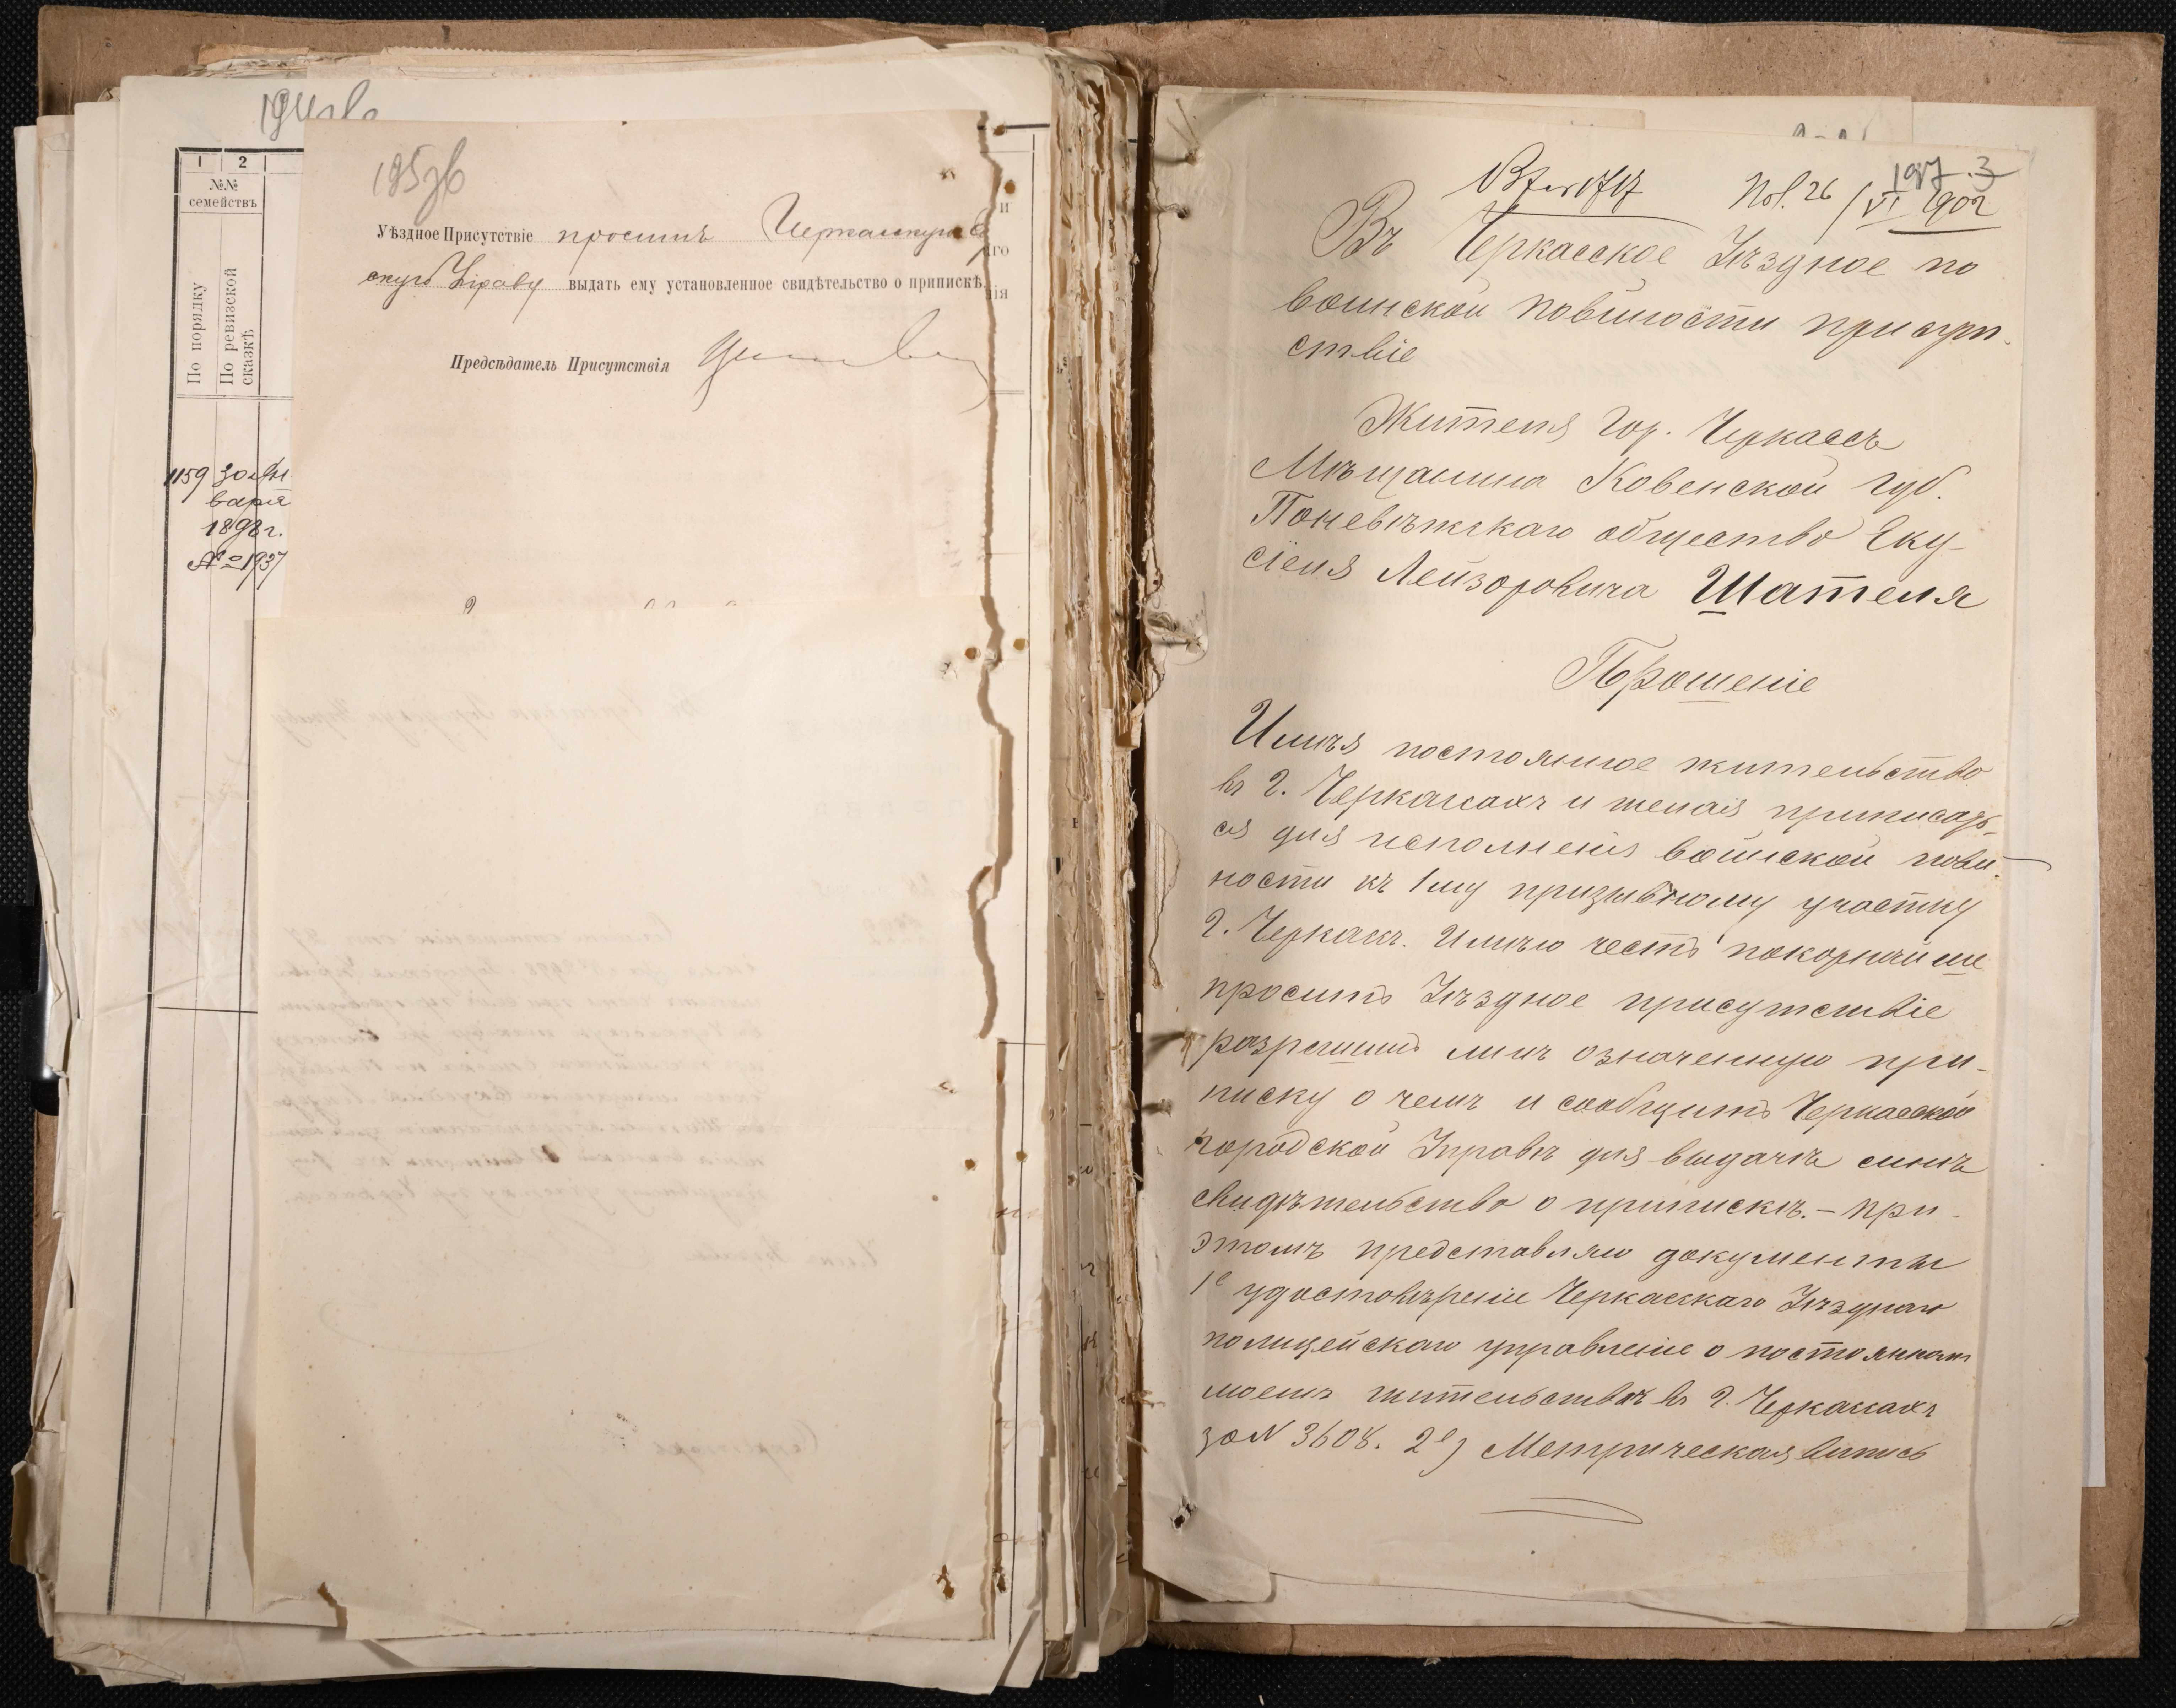 195зв
1
2
№№
семействъ
По порядку
По ревизской
сказкѣ
1159
30 Ян
варя
1898 г.
№ 1937
Уѣздное Присутствіе проситъ Черкасскую
скую Управу выдать ему установленное свидѣтельство о припискѣ.
Предсѣдатель Присутствія
197 3
Пол. 26/VI 1902
Въ Черкасское Уѣздное по
воинской повиности присут-
ствіе
Жителя гор. Черкассъ
Мѣщанина Ковенской губ.
Поневѣжскаго общество Еку-
сіеля Лейзоровича Шателя
Прошеніе
Имѣя постоянное жительство
въ г. Черкассахъ и желая приписать-
ся для исполненія воинской пови-
ности къ 1му призывному участку
г. Черкасъ. Имѣю честь покорнѣйше
просить Уѣздное присутствіе
разрешить мнѣ означенную при-
писку о чемъ и сообщить Черкасской
городской Управѣ для выдачѣ мнѣ
свидѣтельство о припискѣ. – При
этомъ представляю документы
1е удостовѣреніе Черкасскаго Уѣзднаго
полицейскаго управленіе о постоянномъ
моемъ жительствѣ въ г. Черкассахъ
за N 3608. 2е) Метрическая выпись